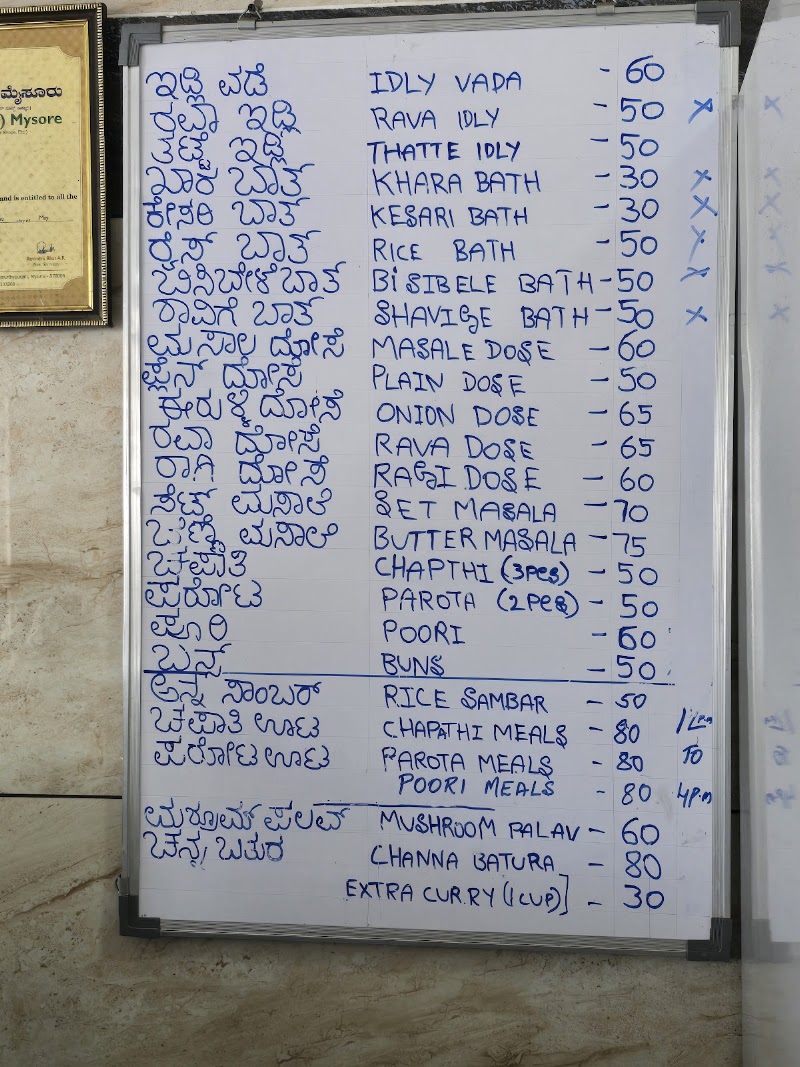 ಮೈಸೂರು
) Mysore
and is entitled to all the
May
ಇಡ್ಲಿ ವಡೆ IDLY VADA - 60
ರವಾ ಇಡ್ಲಿ RAVA IDLY - 50 X
ತಟ್ಟೆ ಇಡ್ಲಿ THATTE IDLY - 50
ಖಾರ ಬಾತ್ KHARA BATH - 30 X
ಕೇಸರಿ ಬಾತ್ KESARI BATH - 30 X
ರೈಸ್ ಬಾತ್ RICE BATH - 50 X
ಬಿಸಿಬೇಳೆ ಬಾತ್ BiSIBELE BATH - 50 X
ಶಾವಿಗೆ ಬಾತ್ SHAVIGE BATH - 50 X
ಮಸಾಲ ದೋಸೆ MASALE DOSE - 60
ಪ್ಲೈನ್ ದೋಸೆ PLAIN DOSE - 50
ಈರುಳ್ಳಿ ದೋಸೆ ONION DOSE - 65
ರವಾ ದೋಸೆ RAVA DOSE - 65
ರಾಗಿ ದೋಸೆ RAGI DOSE - 60
ಸೆಟ್ ಮಸಾಲೆ SET MASALA - 70
ಬೆಣ್ಣೆ ಮಸಾಲೆ BUTTER MASALA - 75
ಚಪಾತಿ CHAPTHI (3Pes) - 50
ಪರೋಟ PAROTA (2Pes) - 50
ಪೂರಿ POORI - 60
ಬನ್ಸ್ BUNS - 50
ಅನ್ನ ಸಾಂಬರ್ RICE SAMBAR - 50
ಚಪಾತಿ ಊಟ CHAPATHI MEALS - 80
ಪರೋಟ ಊಟ PAROTA MEALS - 80 TO
POORI MEALS - 80 4P.m
ಮಶ್ರೂಮ್ ಪಲವ್ MUSHROOM PALAV - 60
ಚನ್ನ ಬತುರ CHANNA BATURA - 80
EXTRA CURRY (1 CUP)] - 30